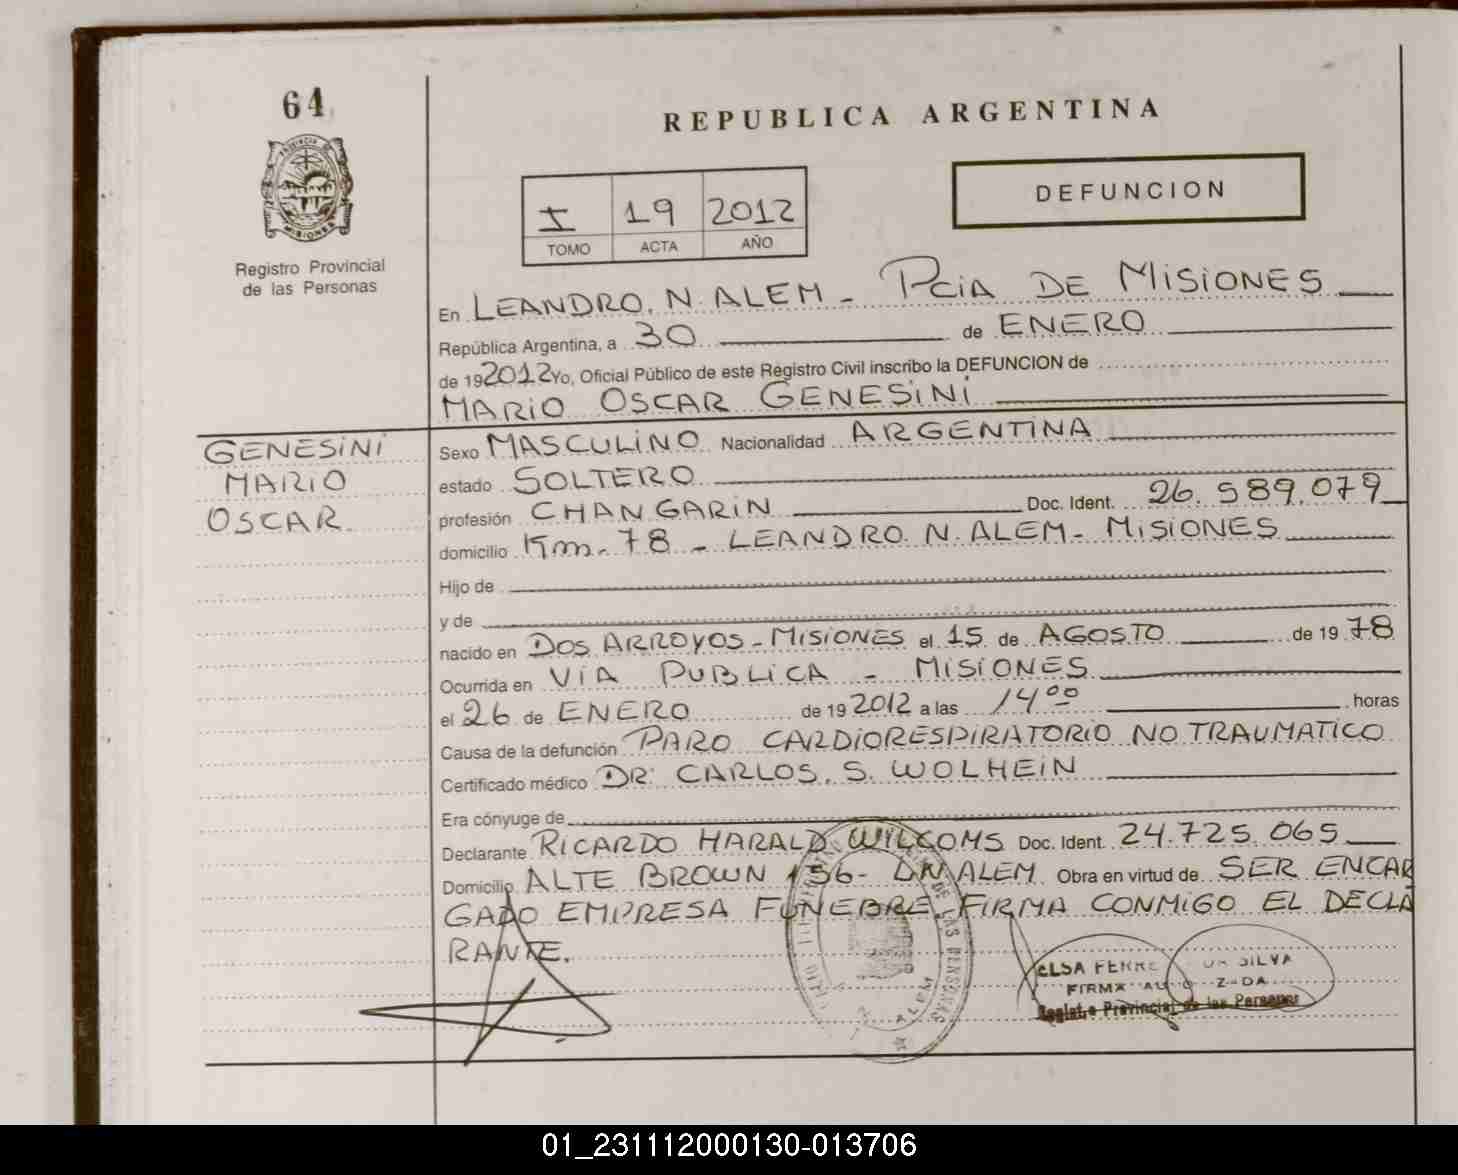 64
PROVINCIA DE
MISIONES
Registro Provincial
de las Personas
REPUBLICA ARGENTINA
I 19 2012
TOMO ACTA AÑO
DEFUNCION
En LEANDRO. N. ALEM - PCiA DE MiSiONES
República Argentina, a 30 de ENERO
de 19 2012 Yo, Oficial Público de este Régistro Civil inscribo la DEFUNCION de
MARiO OSCAR GENESiNi
GENESiNi
MARiO
OSCAR
Sexo MASCULiNO Nacionalidad ARGENTiNA
estado SOLTERO
profesión CHANGARiN Doc. Ident. 26.589.079
domicilio Km. 78 - LEANDRO. N. ALEM - MiSiONES
Hijo de
y de
nacido en DOS ARROYOS - MiSiONES el 15 de AGOSTO de 19 78
Ocurrida en ViA PUBLiCA - MiSiONES
el 26 de ENERO de 19 2012 a las 14 00 horas
Causa de la defunción PARO CARDiORESPiRATORiO NO TRAUMATiCO
Certificado médico DR. CARLOS. S. WOLHEiN
Era cónyuge de
Declarante RiCARDO HARALD WYLCOMS Doc. Ident. 24.725.065
Domicilio ALTE BROWN 156 - LN ALEM Obra en virtud de SER ENCAR
GADO EMPRESA FUNEBRE. FiRMA CONMiGO EL DECLA
RANTE.
DE LAS PERSONAS
ALEM
ELSA FERRE SILVA
FIRMA
Provincial de las Personas
01_231112000130-013706